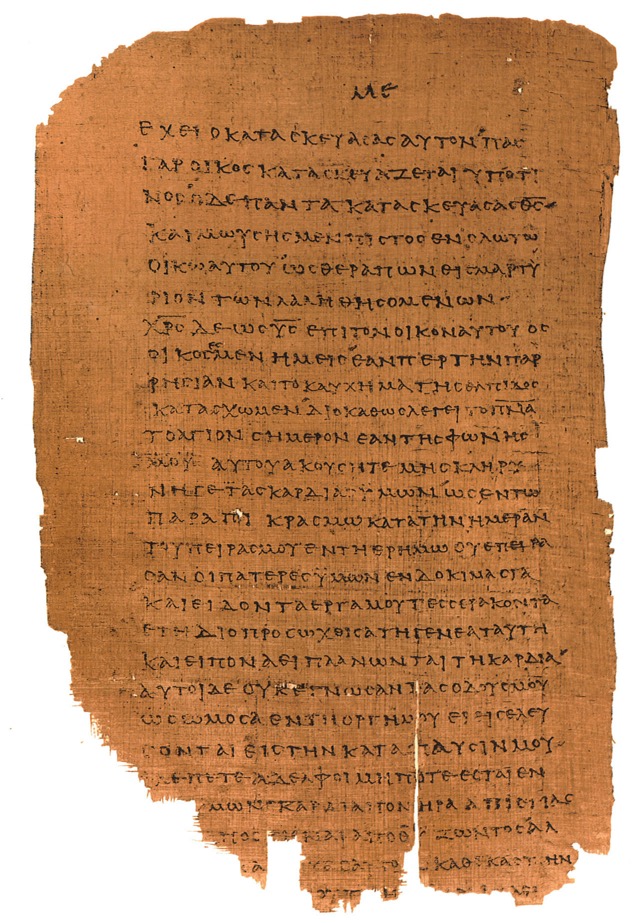 ΜΕ
ΕΧΕΙ Ο ΚΑΤΑϹΚΕΥΑϹΑϹ ΑΥΤΟΝ ΠΑϹ
ΓΑΡ ΟΙΚΟϹ ΚΑΤΑϹΚΕΥΑΖΕΤΑΙ ΥΠΟ ΤΙ
ΝΟϹ Ο ΔΕ ΠΑΝΤΑ ΚΑΤΑϹΚΕΥΑϹΑϹ Θ̅Ϲ̅
ΚΑΙ ΜΩΥϹΗϹ ΜΕΝ ΠΙϹΤΟϹ ΕΝ ΟΛΩ ΤΩ
ΟΙΚΩ ΑΥΤΟΥ ΩϹ ΘΕΡΑΠΩΝ ΕΙϹ ΜΑΡΤΥ
ΡΙΟΝ ΤΩΝ ΛΑΛΗΘΗϹΟΜΕΝΩΝ
Χ̅Ρ̅Ϲ̅ ΔΕ ΩϹ Υ̅Ϲ̅ ΕΠΙ ΤΟΝ ΟΙΚΟΝ ΑΥΤΟΥ ΟϹ
ΟΙΚΟϹ ΕϹΜΕΝ ΗΜΕΙϹ ΕΑΝΠΕΡ ΤΗΝ ΠΑΡ
ΡΗϹΙΑΝ ΚΑΙ ΤΟ ΚΑΥΧΗΜΑ ΤΗϹ ΕΛΠΙΔΟϹ
ΚΑΤΑϹΧΩΜΕΝ ΔΙΟ ΚΑΘΩϹ ΛΕΓΕΙ ΤΟ Π̅Ν̅Α̅
ΤΟ ΑΓΙΟΝ ϹΗΜΕΡΟΝ ΕΑΝ ΤΗϹ ΦΩΝΗϹ
ΑΥΤΟΥ ΑΚΟΥϹΗΤΕ ΜΗ ϹΚΛΗΡΥ
ΝΗΤΕ ΤΑϹ ΚΑΡΔΙΑϹ ΥΜΩΝ ΩϹ ΕΝ ΤΩ
ΠΑΡΑΠΙΚΡΑϹΜΩ ΚΑΤΑ ΤΗΝ ΗΜΕΡΑΝ
ΤΟΥ ΠΕΙΡΑϹΜΟΥ ΕΝ ΤΗ ΕΡΗΜΩ ΟΥ ΕΠΕΙΡΑ
ϹΑΝ ΟΙ ΠΑΤΕΡΕϹ ΥΜΩΝ ΕΝ ΔΟΚΙΜΑϹΙΑ
ΚΑΙ ΕΙΔΟΝ ΤΑ ΕΡΓΑ ΜΟΥ ΤΕϹϹΕΡΑΚΟΝΤΑ
ΕΤΗ ΔΙΟ ΠΡΟϹΩΧΘΙϹΑ ΤΗ ΓΕΝΕΑ ΤΑΥΤΗ
ΚΑΙ ΕΙΠΟΝ ΑΕΙ ΠΛΑΝΩΝΤΑΙ ΤΗ ΚΑΡΔΙΑ
ΑΥΤΟΙ ΔΕ ΟΥΚ ΕΓΝΩϹΑΝ ΤΑϹ ΟΔΟΥϹ ΜΟΥ
ΩϹ ΩΜΟϹΑ ΕΝ ΤΗ ΟΡΓΗ ΜΟΥ ΕΙ ΕΙϹΕΛΕΥ
ϹΟΝΤΑΙ ΕΙϹ ΤΗΝ ΚΑΤΑΠΑΥϹΙΝ ΜΟΥ
ΒΛΕΠΕΤΕ ΑΔΕΛΦΟΙ ΜΗΠΟΤΕ ΕϹΤΑΙ ΕΝ
ΜΩΝ ΚΑΡΔΙΑ ΠΟΝΗΡΑ ΑΠΙϹΤΙΑϹ
ΑΠΟ Θ̅Υ̅ ΖΩΝΤΟϹ ΑΛ
ΚΑΘ ΕΚΑϹΤΗΝ